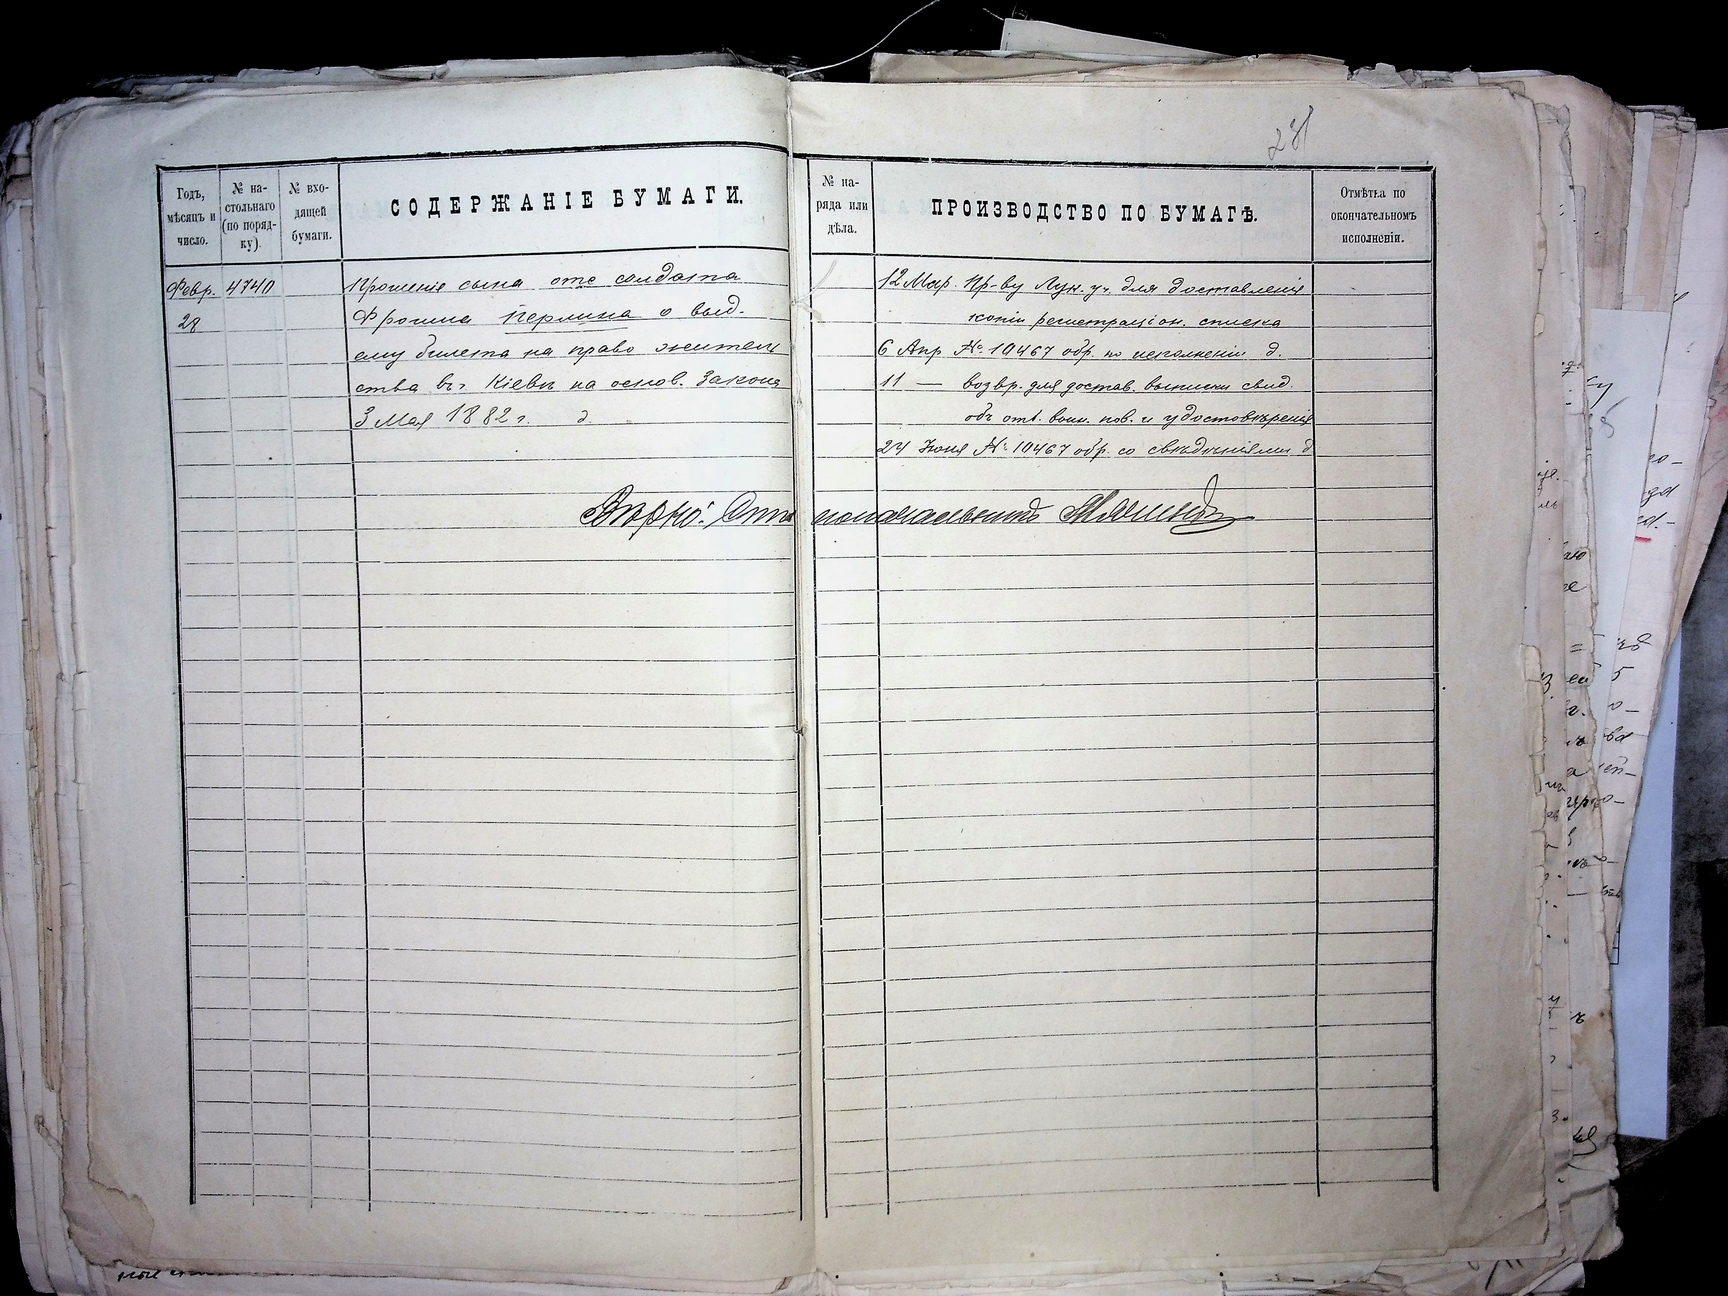 231
Годъ, мѣсяцъ и число.
№ на-стольнаго (по поряд-ку).
№ вхо-дящей бумаги.
СОДЕРЖАНІЕ БУМАГИ.
№ на-ряда или дѣла.
ПРОИЗВОДСТВО ПО БУМАГѢ.
Отмѣтка по окончательномъ исполненіи.
Февр. 4740 Прошеніе сына отс солдата
28 Фроима Перлина о выд.
ему билета на право житель
ства въ г. Кіевѣ на основ. Закона
3 Мая 1882 г. д.
12 Мар. Пр-ву Лук. уч. для доставленія
копіи регистраціон. списка
6 Апр № 10467 обр. по исполненіи д.
11 — возвр. для достав. выписки свид.
объ отб. воин. пов. и удостовѣренія
24 Іюня № 10467 обр. со свѣдѣніями д
Вѣрно: Столоначальникъ